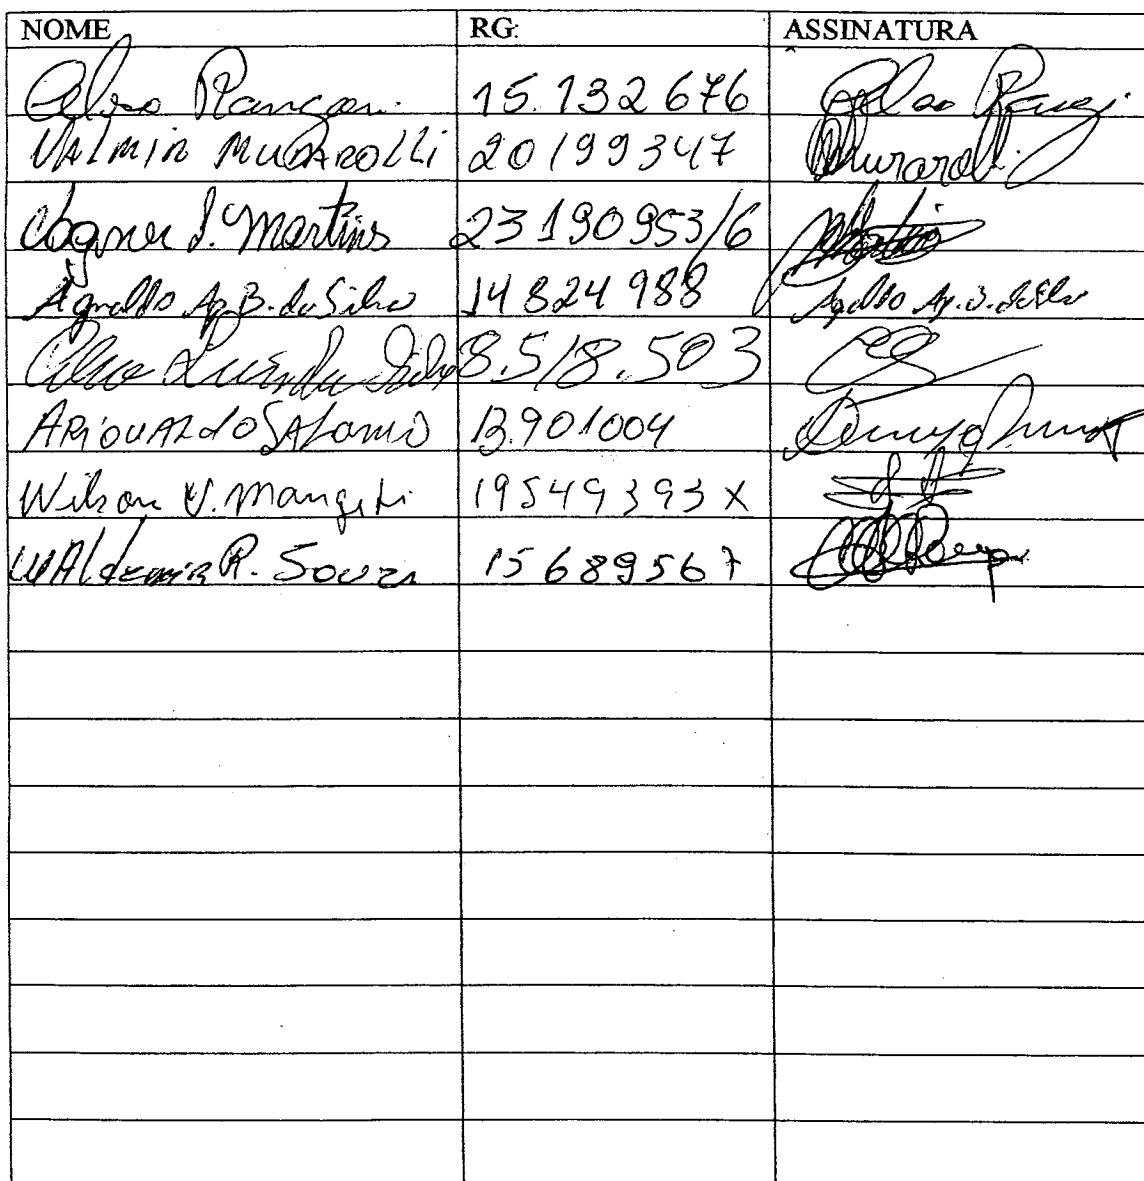 NOME RG: ASSINATURA
Celso Rangon 15.132676 Celso
VALMIR MURAROLLI 20199347 Murarolli
Vagner S. Martins 23190953/6 Martins
Agnaldo Ap. B. da Silva 14824988 Agnaldo Ap. B. da Silva
Celso Luis da Silva 8.518.503 CS
ARIOVALDO 13.901004
Wilson V. 19549393X
WAldemiR R. Souza 15689567